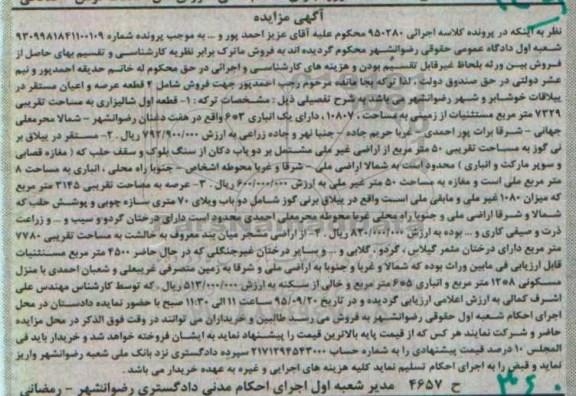 آگهی مزایده
نظر به اینکه در پرونده کلاسه اجرائی ۹۵۰۲۸۰ محکوم علیه آقای عزیز احمد پور و ... به موجب پرونده شماره ۹۳۰۹۹۸۱۸۴۱۱۰۰۱۰۹
شعبه اول دادگاه عمومی حقوقی رضوانشهر محکوم گردیده اند به فروش ماترک برابر نظریه کارشناسی و تقسیم بهای حاصل از
فروش بین ورثه بلحاظ غیرقابل تقسیم بودن و هزینه های کارشناسی و اجرائی در حق محکوم له خانم حدیقه احمدپور و نیم
عشر دولتی در حق صندوق دولت، لذا ترکه باقیمانده مرحوم رجب احمدپور جهت فروش شامل ۴ قطعه عرصه و اعیان مستقر در
ییلاقات خوشابر و شهر رضوانشهر می باشند، بشرح تفصیلی ذیل: مشخصات ترکه: ۱- قطعه اول شالیزاری به مساحت تقریبی
۷۲۲۹ متر مربع مستثنیات از زمینی به مساحت ۱۰۸۰۷، دارای یک انباری ۶×۳ واقع در هفت دغنان رضوانشهر - شمالا محرمعلی
جهانی - شرقا برات پور احمدی - غربا حریم جاده - جنبا نهر و جاده زراعی به ارزش ۷۹۲/۹۰۰/۰۰۰ ریال ۲- مستقر در ییلاق بر
نی گوز به مساحت تقریبی ۵۰ متر مربع از اراضی غیر ملی مشتمل بر دو باب دکان از سنگ بلوک و سقف حلب که (مغازه قصابی
و سوپر مارکت و انباری) محدود است به شمالا اراضی ملی - شرقا و غربا محوطه اشخاص - جنوبا راه محلی، انباری به مساحت ۸
متر مربع ملی است و مغازه به مساحت ۵۰ متر غیر ملی به ارزش ۶۰۰/۰۰۰/۰۰۰ ریال. ۳- عرصه به مساحت تقریبی ۳۱۴۵ متر مربع
که میزان ۱۰۸۰ غیر ملی و مابقی ملی است واقع در ییلاق برنی گوز شامل دو باب ویلای ۷۰ متری سازه چوبی و پوشش حلب که
شمالا و شرقا اراضی ملی و جنوبا راه محلی غربا محوطه محرمعلی احمدی محدود است دارای درختان گردو و سیب و ... و زراعت
ذرت و صیفی کاری و ... بوده به ارزش ۸۲۰/۰۰۰/۰۰۰ ریال. ۴- از اراضی سنجر میان بند معروف به خالشت به مساحت تقریبی ۷۷۸۰
متر مربع دارای درختان مثمر گیلاس، گردو، گلابی و ... و سایر درختان غیرجنگلی که در حال حاضر ۴۵۰۰ متر مربع مستثنیات
قابل ارزیابی فی مابین وراث بوده که شمالا و غربا و جنوبا به اراضی ملی و شرقا به زمین متصرفی غریبعلی و شعبان احمدی با منزل
مسکونی ۸×۱۲ متر مربع و انباری ۵×۶ متر مربع و خالی از سکنه به ارزش ۵۱۳/۰۰۰/۰۰۰ ریال، که توسط کارشناس مهندس علی
اشرف کمالی به ارزش اعلامی ارزیابی گردیده و در تاریخ ۹۵/۰۹/۲۰ ساعت ۱۱ الی ۱۱:۳۰ صبح با حضور نماینده دادستان در محل
اجرای احکام شعبه اول حقوقی رضوانشهر به فروش می رسد طالبین و خریداران می توانند در وقت فوق الذکر در محل مزایده
حاضر و شرکت نمایند هر کس که از قیمت پایه بالاترین قیمت را پیشنهاد نماید به ایشان فروخته خواهد شد و خریدار باید فی
المجلس ۱۰ درصد قیمت پیشنهادی را به شماره حساب ۲۱۷۱۲۹۴۵۴۳۰۰۰ سپرده دادگستری نزد بانک ملی شعبه رضوانشهر واریز
نماید و قبض را به اجرای احکام تسلیم نماید کلیه هزینه های اجرایی و غیره به عهده خریدار می باشد.
ح ۴۶۵۷ مدیر شعبه اول اجرای احکام مدنی دادگستری رضوانشهر - رمضانی
۳۶۰